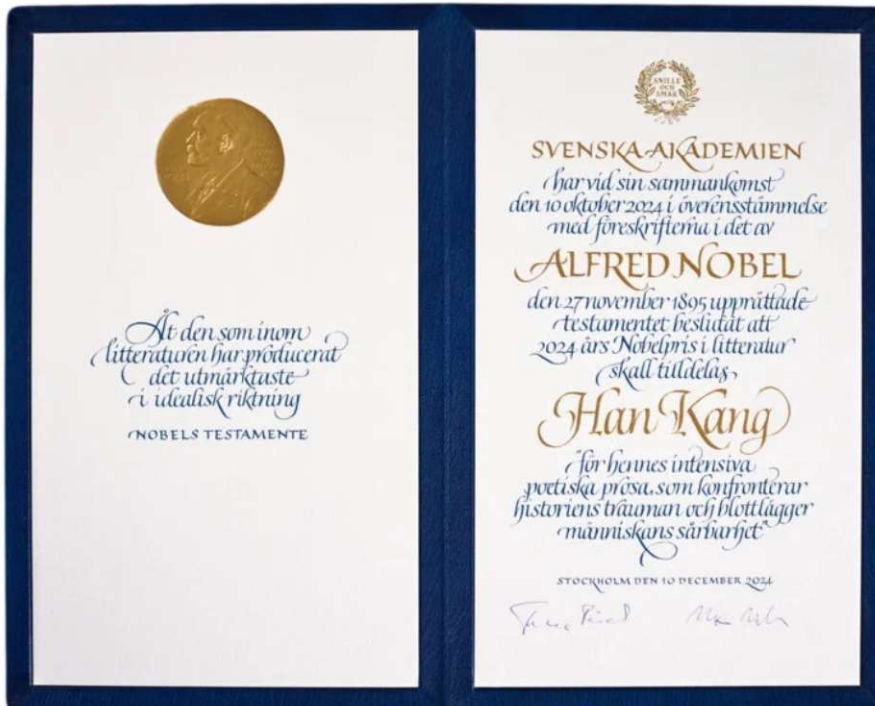 Åt den som inom
litteraturen har producerat
det utmärktaste
i idealisk riktning
NOBELS TESTAMENTE
SNILLE
OCH
SMAK
SVENSKA AKADEMIEN
har vid sin sammankomst
den 10 oktober 2024 i överensstämmelse
med föreskrifterna i det av
ALFRED NOBEL
den 27 november 1895 upprättade
testamentet beslutat att
2024 års Nobelpris i litteratur
skall tilldelas
Han Kang
"för hennes intensiva
poetiska prosa, som konfronterar
historiens trauman och blottlägger
människans sårbarhet"
STOCKHOLM DEN 10 DECEMBER 2024